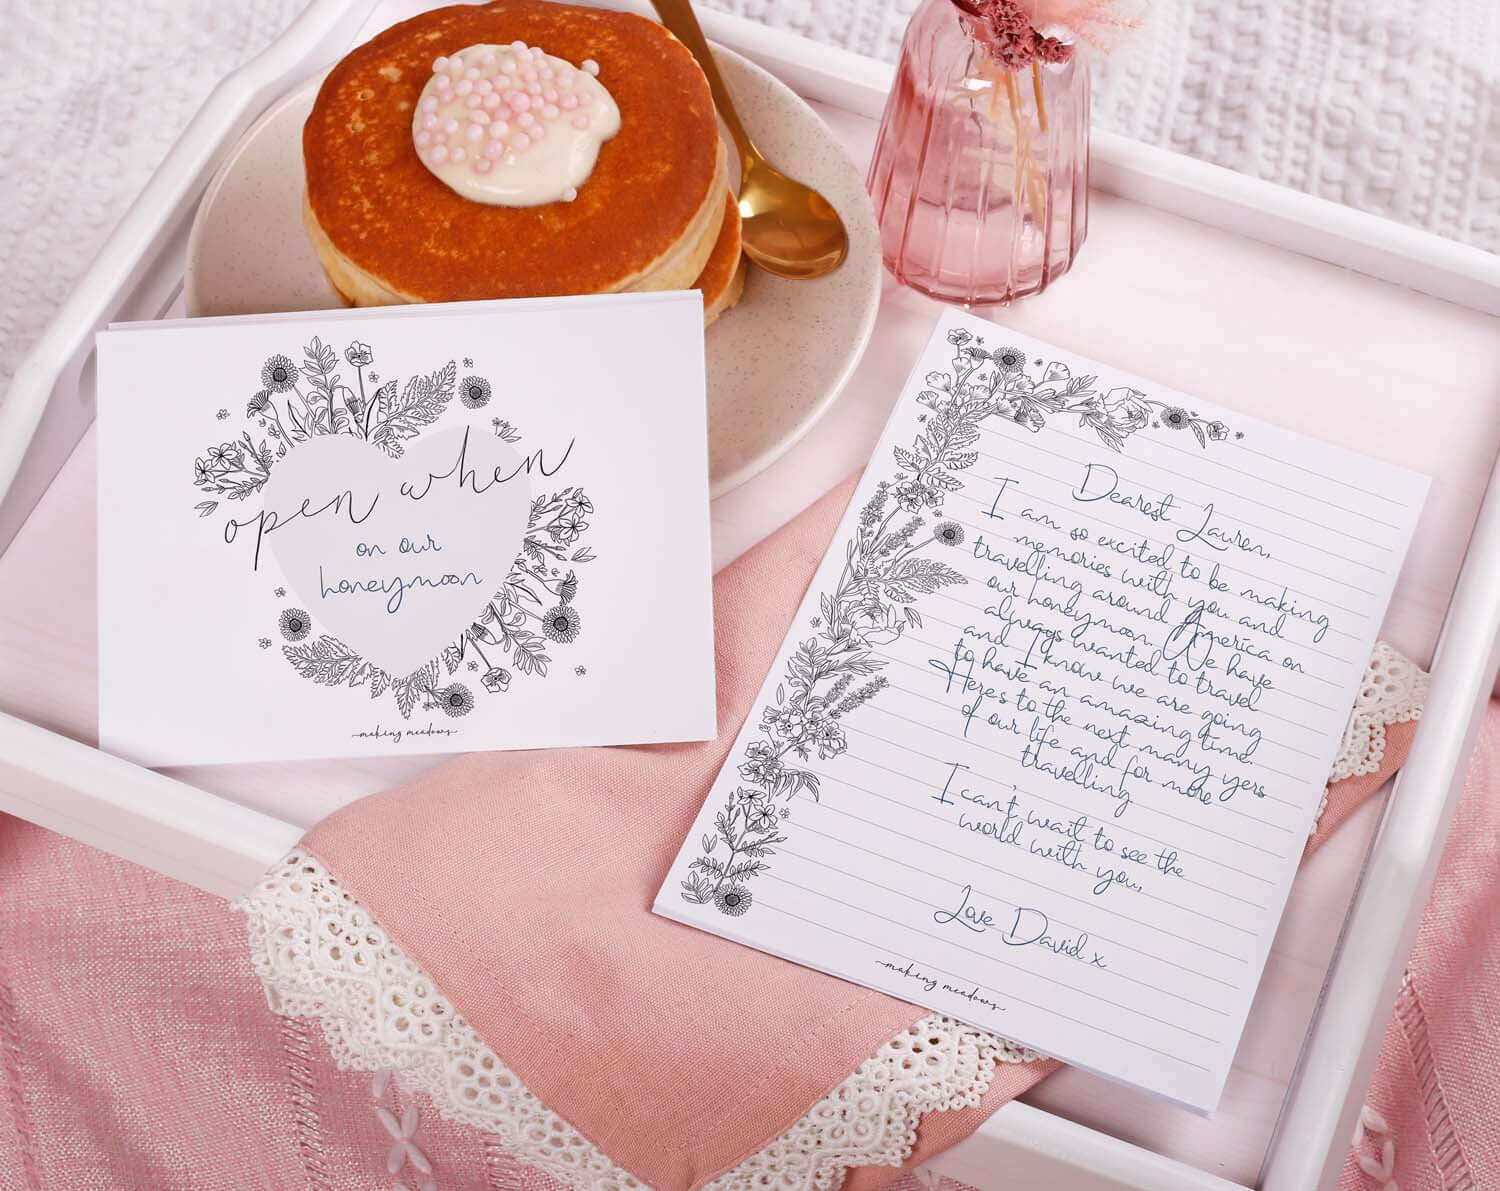 open when
on our
honeymoon
making meadows
Dearest Lauren,
I am so excited to be making
memories with you and
travelling around America on
our honeymoon. We have
always wanted to travel
and I know we are going
to have an amazing time.
Heres to the next many yers
of our life and for more
travelling
I can't wait to see the
world with you,
Love David x
making meadows